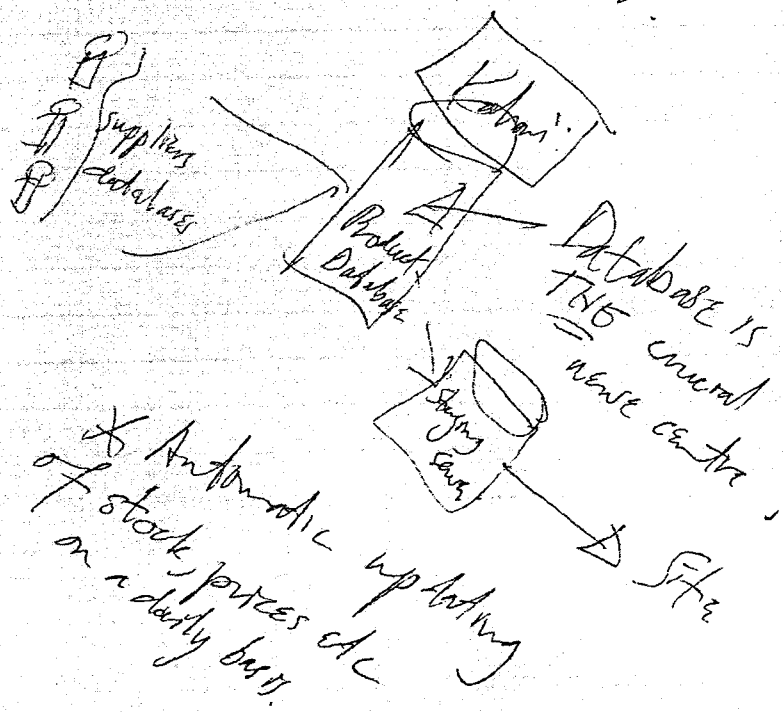 suppliers
databases
Product
Database
Database is
THE crucial
nerve centre.
staging
server
Site
* Automatic updating
of stock, prices etc
on a daily basis.